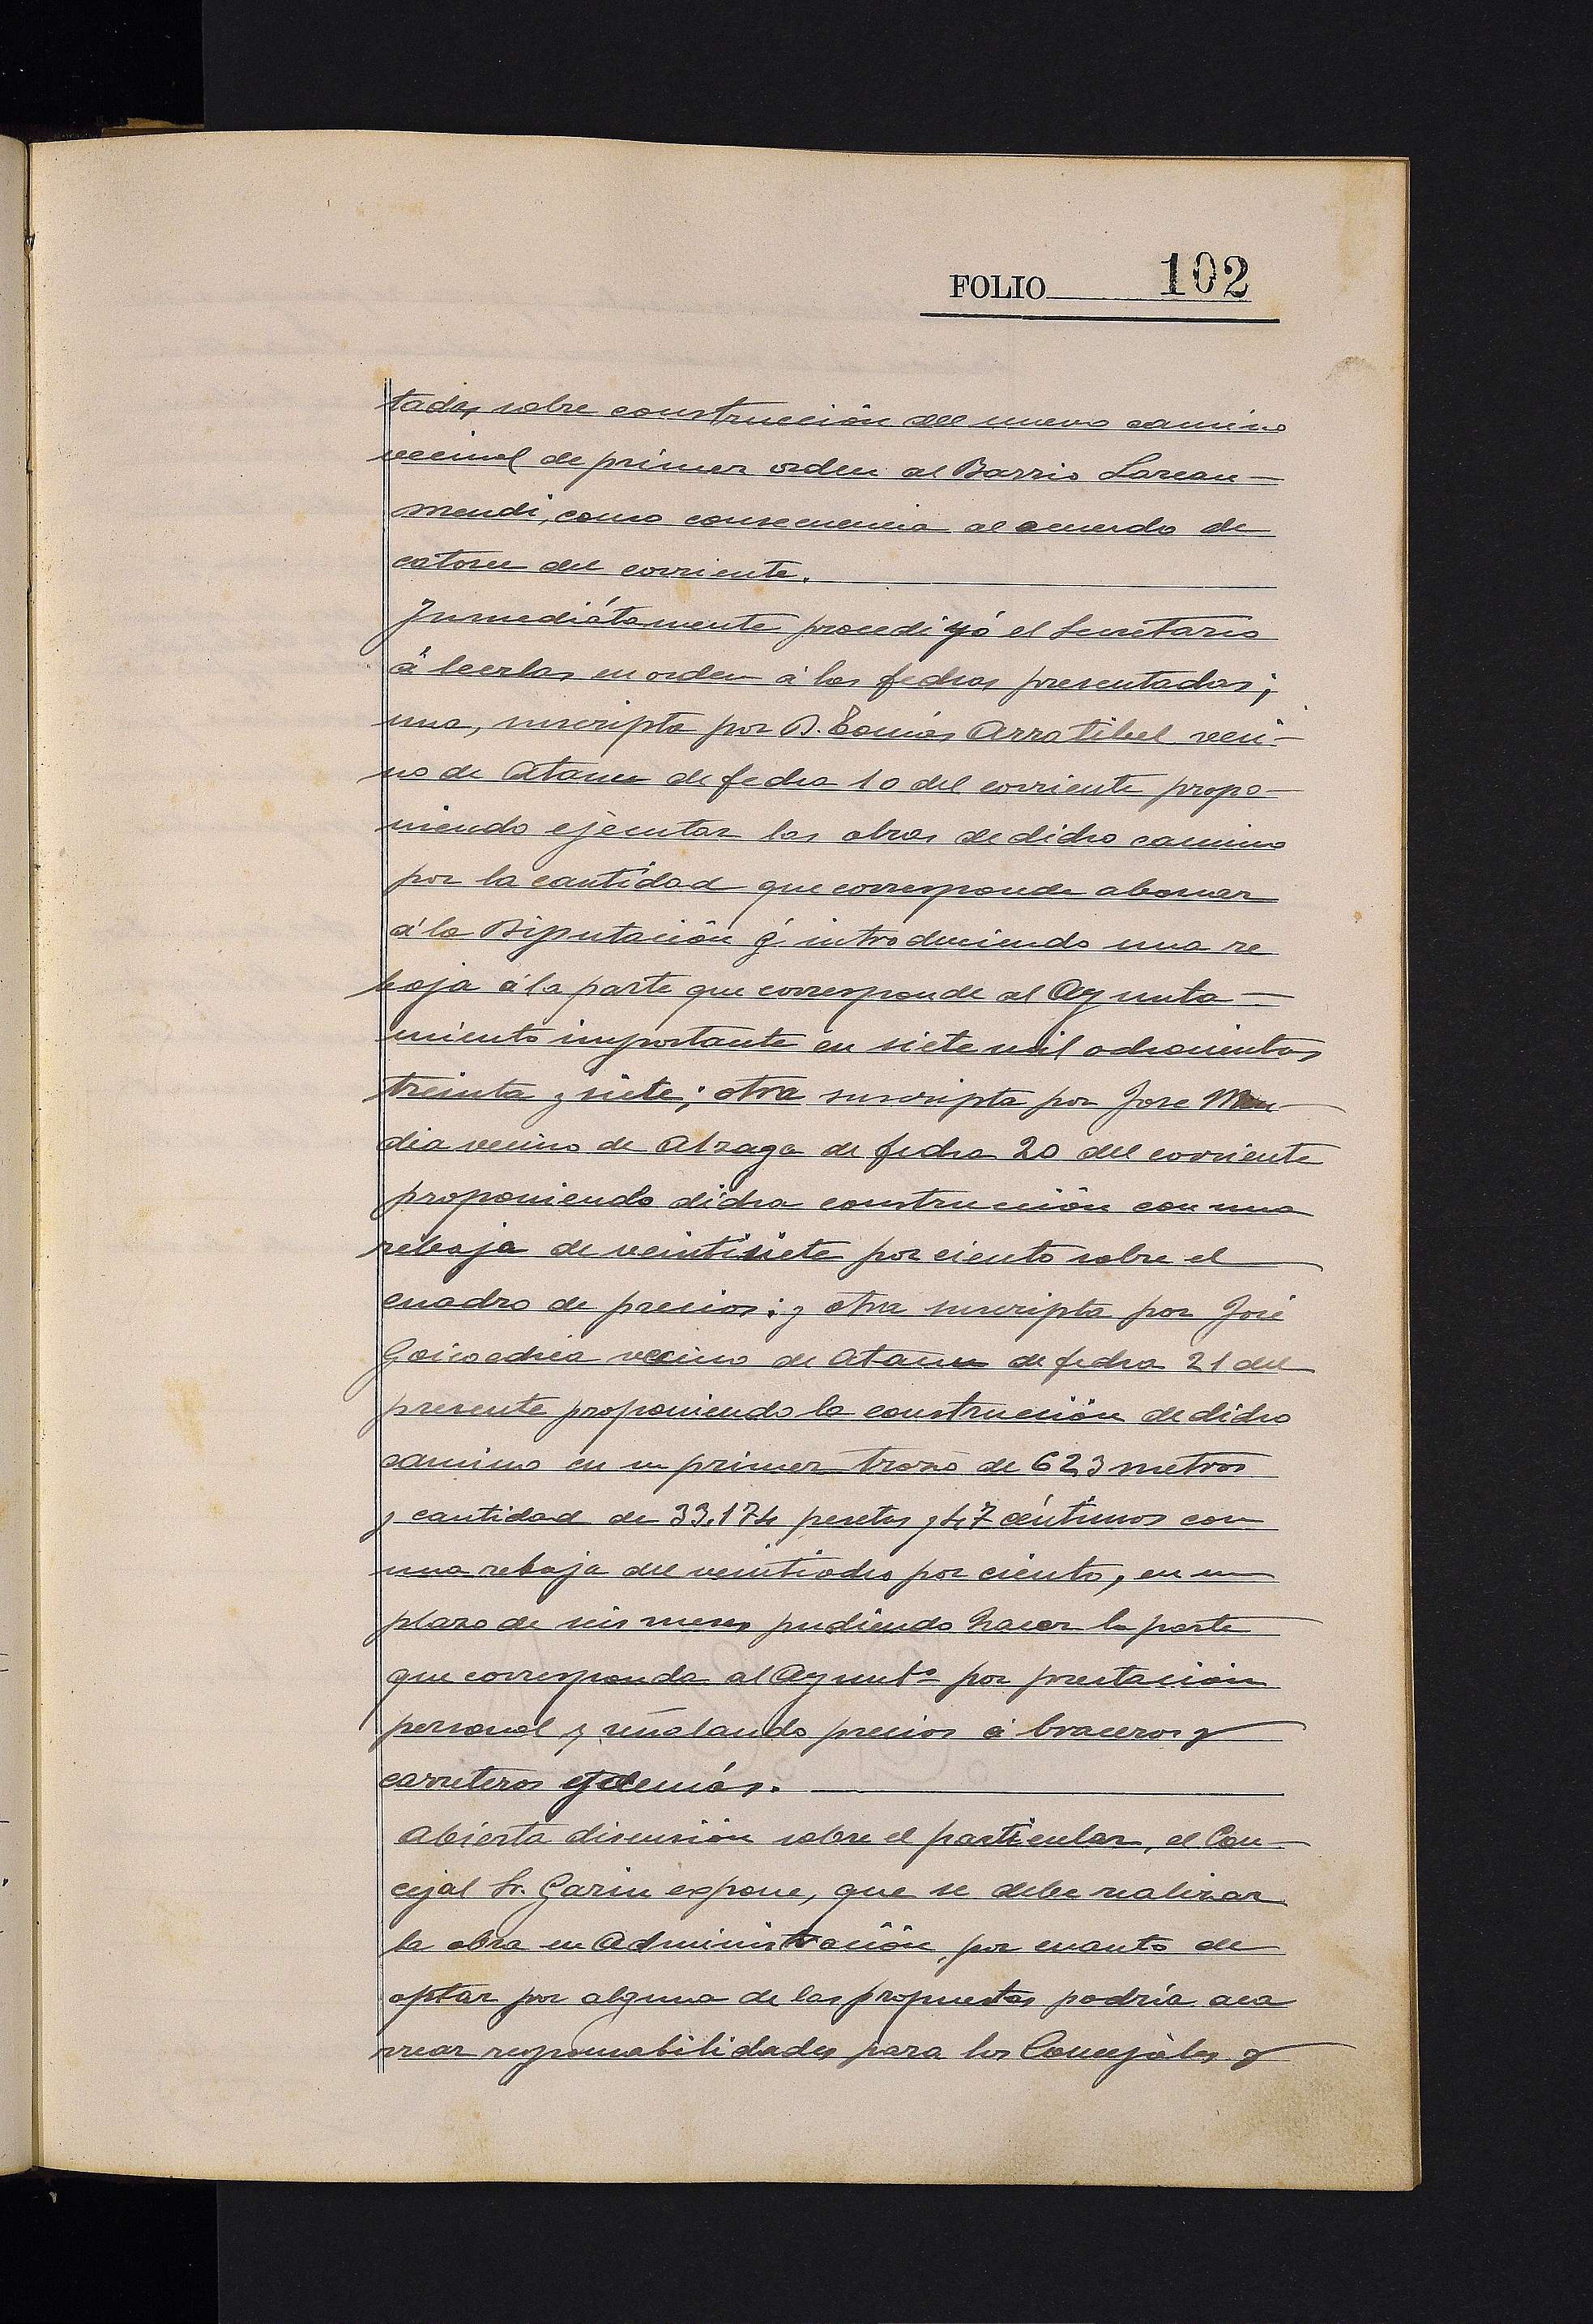 FOLIO 102
tadas sobre construcción del nuevo camino
vecinal de primer orden al Barrio Larcan-
mendi, como consecuencia al acuerdo de
catorce del corriente.
Inmediátamente procedi yó el Secretario
á leerlas en orden á las fechas presentadas;
una, suscripta por D. Tomás Arratibel veci-
no de Ataun de fecha 10 del corriente propo-
niendo ejecutar las obras de dicho camino
por la cantidad que corresponde abonar
á la Diputación é introduciendo una re
baja á la parte que corresponde al Ayunta-
miento importante en siete mil ochocientos
treinta y siete; otra suscripta por Jose Men-
dia vecino de Alzaga de fecha 20 del corriente
proponiendo dicha construcción con una
rebaja de veintisiete por ciento sobre el
cuadro de precios: y otra suscripta por José
Goicoechea vecino de Ataun de fecha 21 del
presente proponiendo la construcción de dicho
camino en un primer trozo de 623 metros
y cantidad de 33.174 pesetas y 47 céntimos con
una rebaja del veintiocho por ciento, en un
plazo de seis meses pudiendo hacer la parte
que corresponda al Ayuntº por prestación
personal y señalando precios á braceros y
carreteros y demás.
Abierta discusión sobre el particular, el Con-
cejal Sr. Garin expone, que se debe realizar
la obra en Administración, por cuanto de
optar por alguna de las propuestas podría aca
rrear responsabilidades para los Concejales y